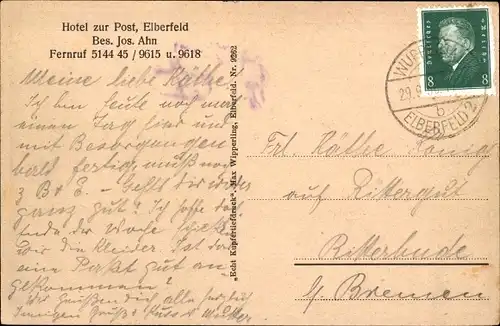 Hotel zur Post, Elberfeld
Bes. Jos. Ahn
Fernruf 5144 45 / 9615 u. 9618
Meine liebe Käthe!
Ich bin heute noch mal
einen Tag hier und
mit Besorgungen
bald fertig, muß nur
z B. Geht dir wieder
ganz gut? Ich hoffe
der Woche
Dir die Kleider. Ist das
eine Paket gut an
gekommen!
Wir Grüßen Dich alle herzlich
Innigen Gruß + Kuss v Mutter
„Echt Kupfertiefdruck“ Max Wipperling, Elberfeld. Nr. 9262
Deutsches Reich
8 8
ELBERFELD 2
29.9.
b
Frl Käthe König
auf Rittergut
Ritterhude
b/ Bremen